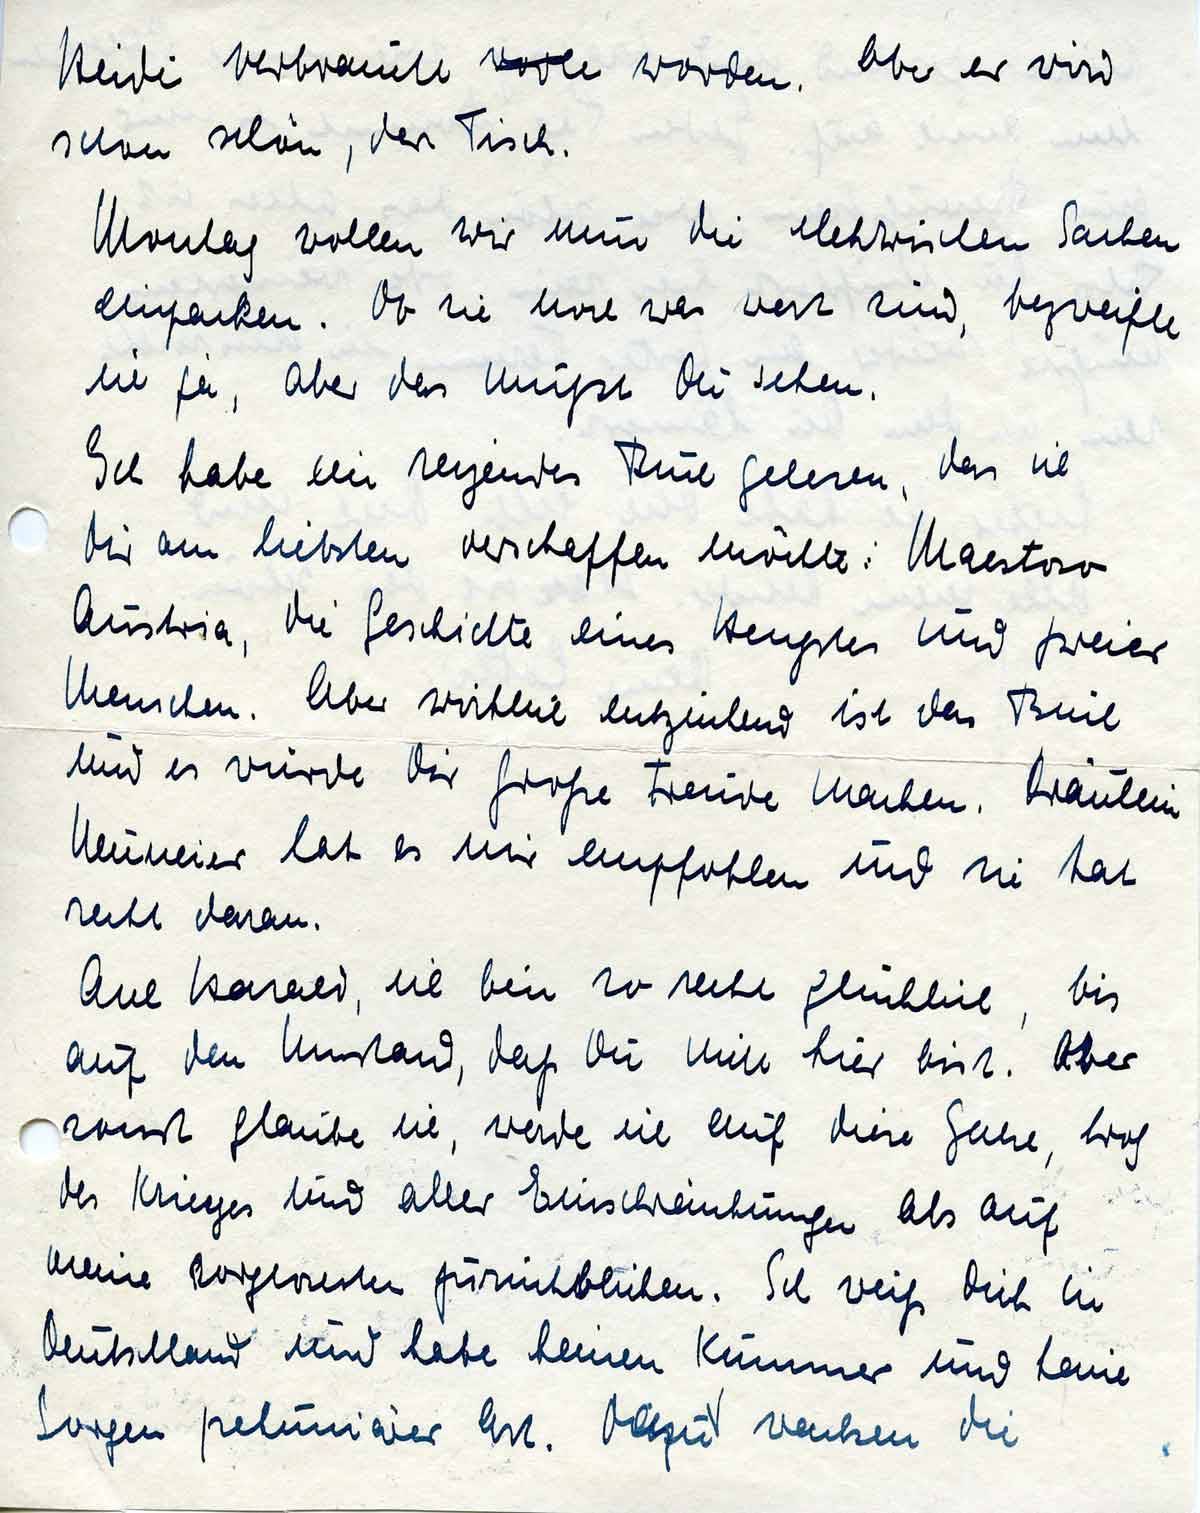 Heidi verbraucht worden. Aber er wird
schon schön, der Tisch.
Montag wollen wir nun die elektrischen Sachen
einpacken. Ob sie noch was wert sind, bezweifle
ich ja, aber das mußt Du sehen.
Ich habe ein reizendes Buch gelesen, das ich
Dir am liebsten verschaffen möchte: Maestoso
Austria, die Geschichte eines Hengstes und zweier
Menschen. Aber wirklich entzückend ist das Buch
und es würde Dir große Freude machen. Fräulein
Neumeier hat es mir empfohlen und sie hat
recht daran.
Ach Harald, ich bin so recht glücklich, bis
auf den Umstand, daß Du nicht hier bist. Aber
sonst glaube ich, werde ich auf diese Jahre, trotz
des Krieges und aller Einschränkungen als auf
meine sorglosesten zurückblicken. Ich weiß Dich in
Deutschland und habe keinen Kummer und keine
Sorgen pekuniärer Art. Dazu wachsen die